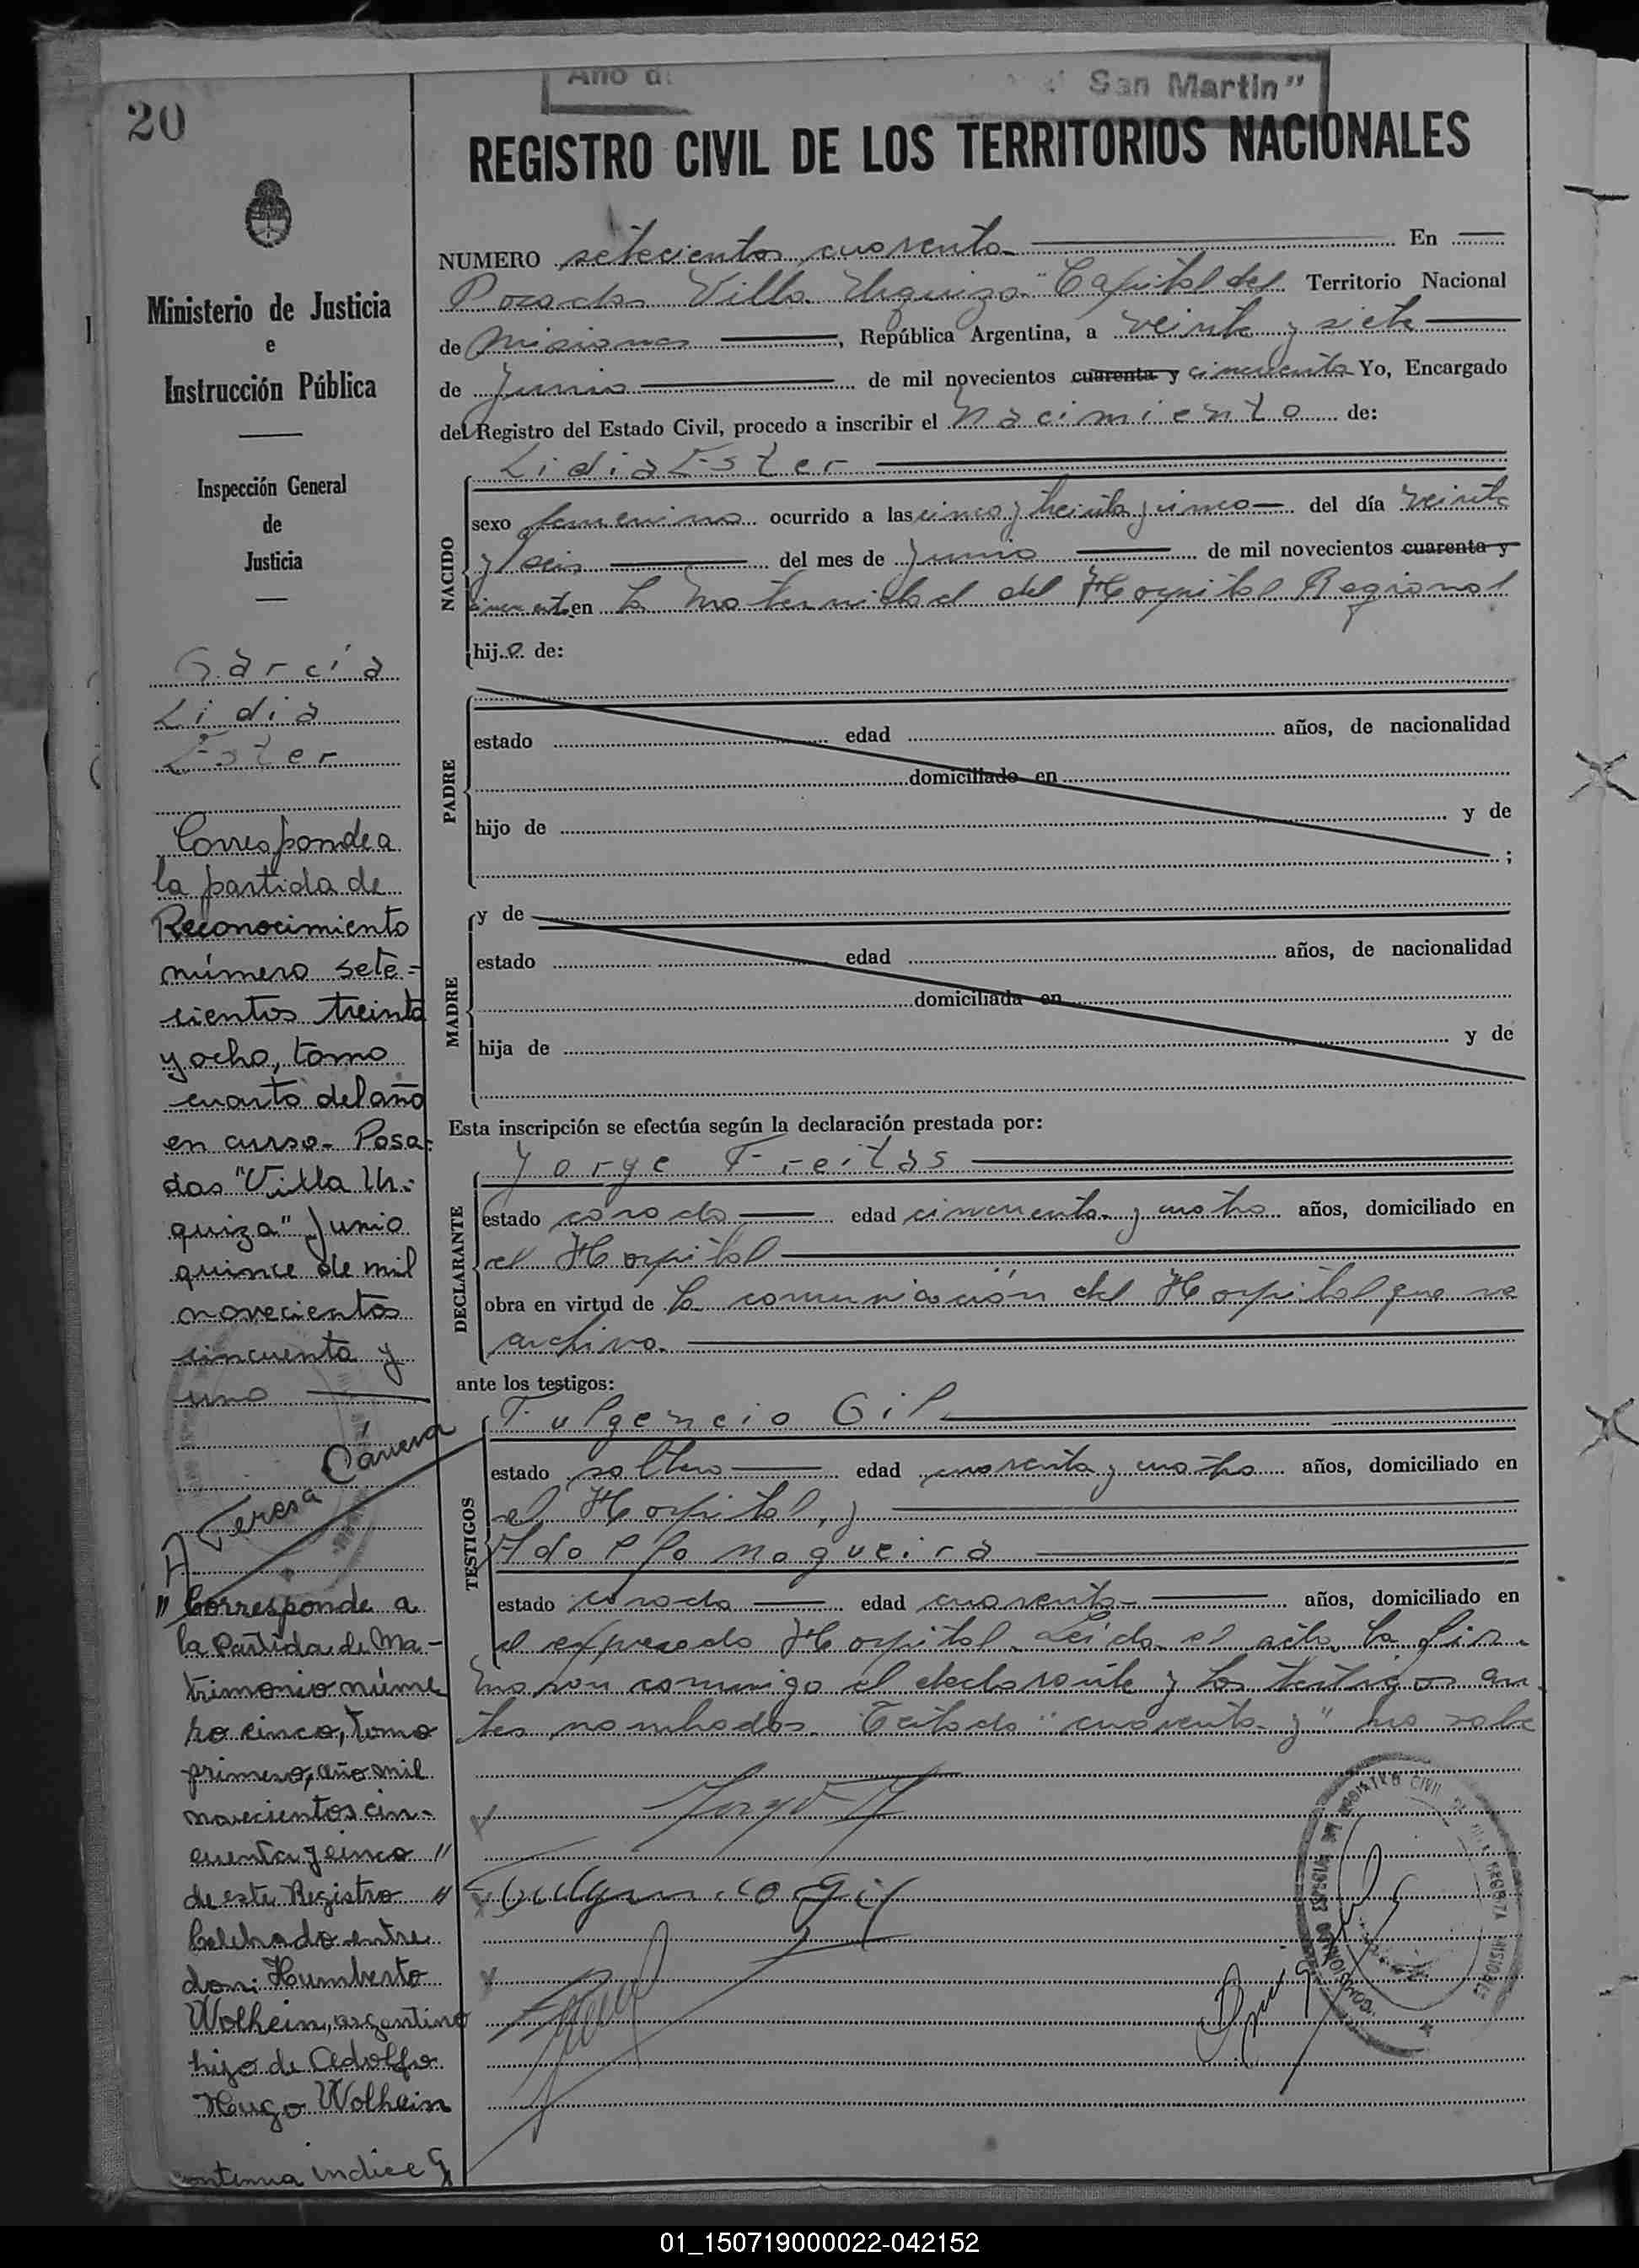 Año d
San Martin"
20
REGISTRO CIVIL DE LOS TERRITORIOS NACIONALES
NUMERO setecientos cuarenta En
Posadas Villa Urquiza" Capital del Territorio Nacional
de Misiones, República Argentina, a veinte y siete
de Junio de mil novecientos cuarenta y cincuenta Yo, Encargado
del Registro del Estado Civil, procedo a inscribir el Nacimiento de:
Lidia Ester
NACIDO
sexo femenino ocurrido a las cinco y treinta y cinco del día veinte
y seis del mes de Junio de mil novecientos cuarenta y
cincuenta en la Maternidad del Hospital Regional
hija de:
PADRE
estado edad años, de nacionalidad
domiciliado en
hijo de y de
;
MADRE
y de
estado edad años, de nacionalidad
domiciliada en
hija de y de
Esta inscripción se efectúa según la declaración prestada por:
DECLARANTE
Jorge Freitas
estado casado edad cincuenta y cuatro años, domiciliado en
el Hospital
obra en virtud de la comunicación del Hospital que se
archiva.
ante los testigos:
TESTIGOS
Fulgencio Gil
estado soltero edad cuarenta y cuatro años, domiciliado en
el Hospital, y
Adolfo Nogueira
estado casado edad cuarenta años, domiciliado en
el expresado Hospital. Leída el acta la fir-
maron conmigo el declarante y los testigos an-
tes nombrados. Testado "cuarenta y" no vale
Fulgencio Gil
Ministerio de Justicia
e
Instrucción Pública
Inspección General
de
Justicia
García
Lidia
Ester
Corresponde a
la partida de
Reconocimiento
número sete-
cientos treinta
y ocho, tomo
cuarto del año
en curso- Posa-
das "Villa Ur-
quiza" Junio
quince de mil
novecientos
cincuenta y
uno
A Teresa Cánera
"Corresponde a
la Partida de Ma-
trimonio núme
ro cinco, tomo
primero, año mil
novecientos cin-
cuenta y cinco "
de este Registro "
Celebrado entre
don: Humberto
Wolhein, argentino
hijo de Adolfo
Hugo Wolhein
continua indice G
01_150719000022-042152